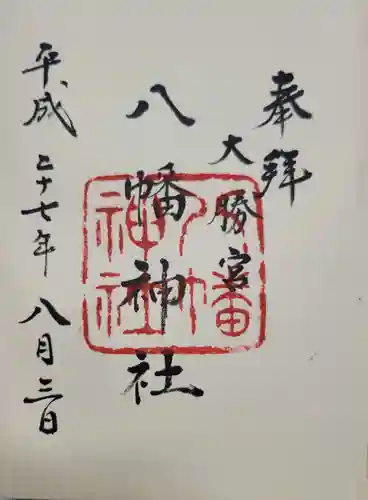 奉拝
大勝宮
八幡神社
平成二十七年八月三日
八幡
神社